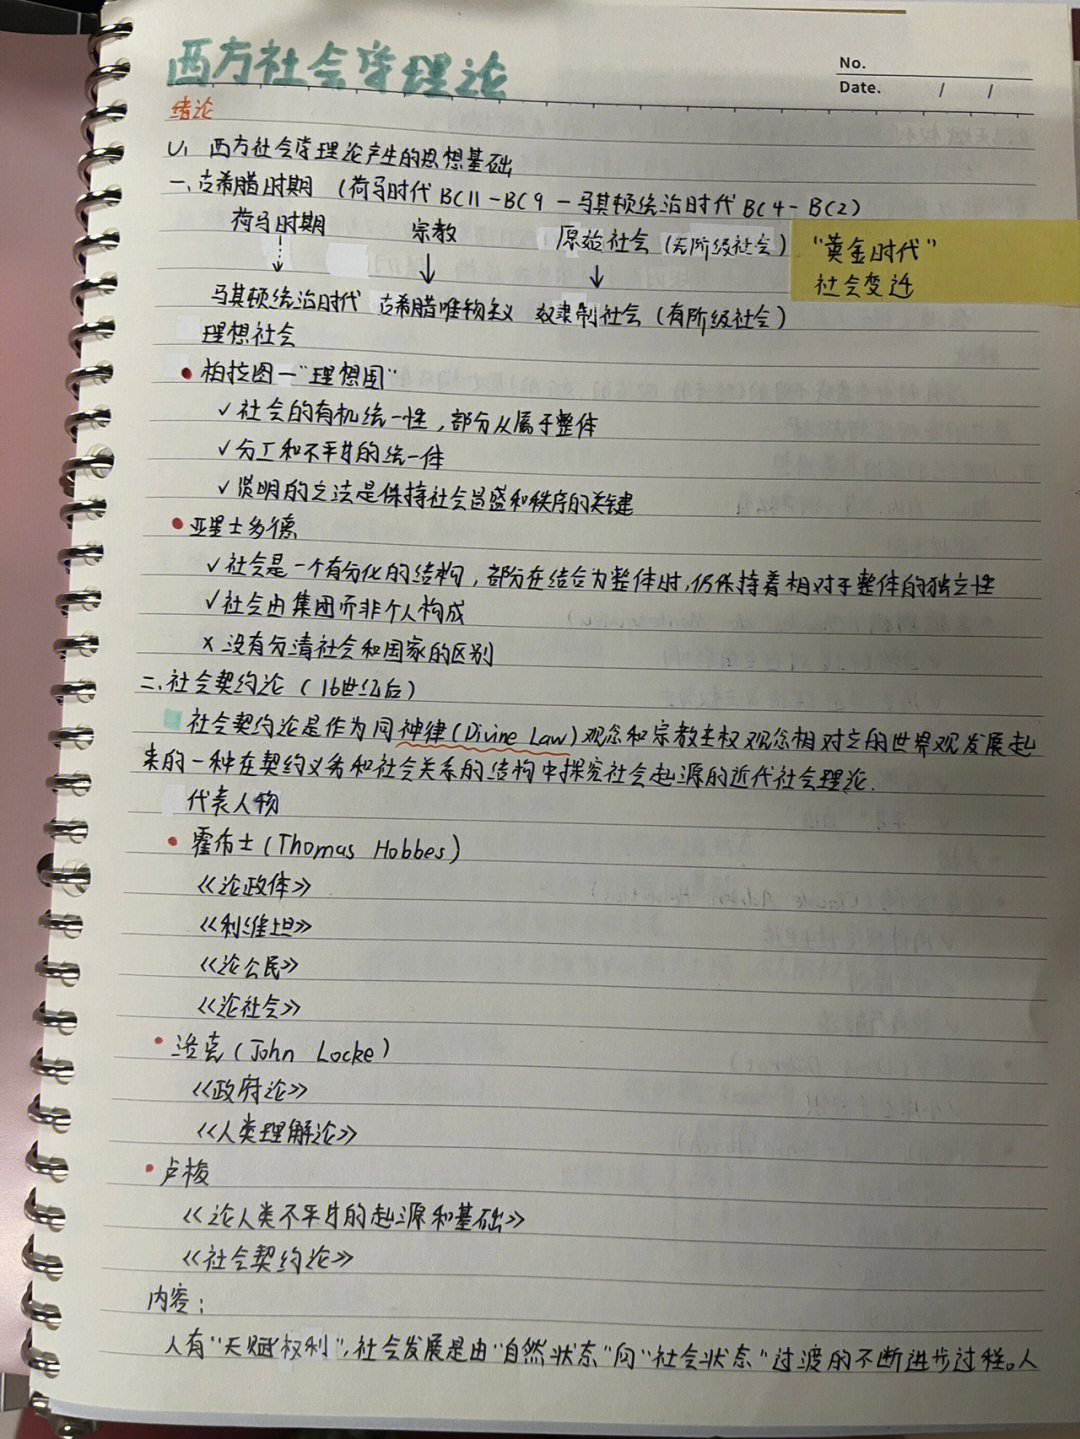 西方社会学理论
No.
Date. / /
绪论
U1 西方社会学理论产生的思想基础
一、古希腊时期 (荷马时代 BC11-BC9 — 马其顿统治时代 BC4-BC2)
荷马时期 宗教 原始社会 (无阶级社会)
"黄金时代"
社会变迁
马其顿统治时代 古希腊唯物主义 奴隶制社会 (有阶级社会)
理想社会
• 柏拉图—"理想国"
✓ 社会的有机统一性,部分从属于整体
✓ 分工和不平等的统一体
✓ 贤明的立法是保持社会昌盛和秩序的关键
• 亚里士多德
✓ 社会是一个有分化的结构,部分在结合为整体时,仍保持着相对于整体的独立性
✓ 社会由集团而非个人构成
x 没有分清社会和国家的区别
二、社会契约论 (16世纪后)
社会契约论是作为同神律(Divine Law)观念和宗教主权观念相对立的世界观发展起
来的一种在契约义务和社会关系的结构中探究社会起源的近代社会理论.
代表人物
• 霍布士(Thomas Hobbes)
《论政体》
《利维坦》
《论公民》
《论社会》
• 洛克(John Locke)
《政府论》
《人类理解论》
• 卢梭
《论人类不平等的起源和基础》
《社会契约论》
内容:
人有"天赋权利",社会发展是由"自然状态"向"社会状态"过渡的不断进步过程。人